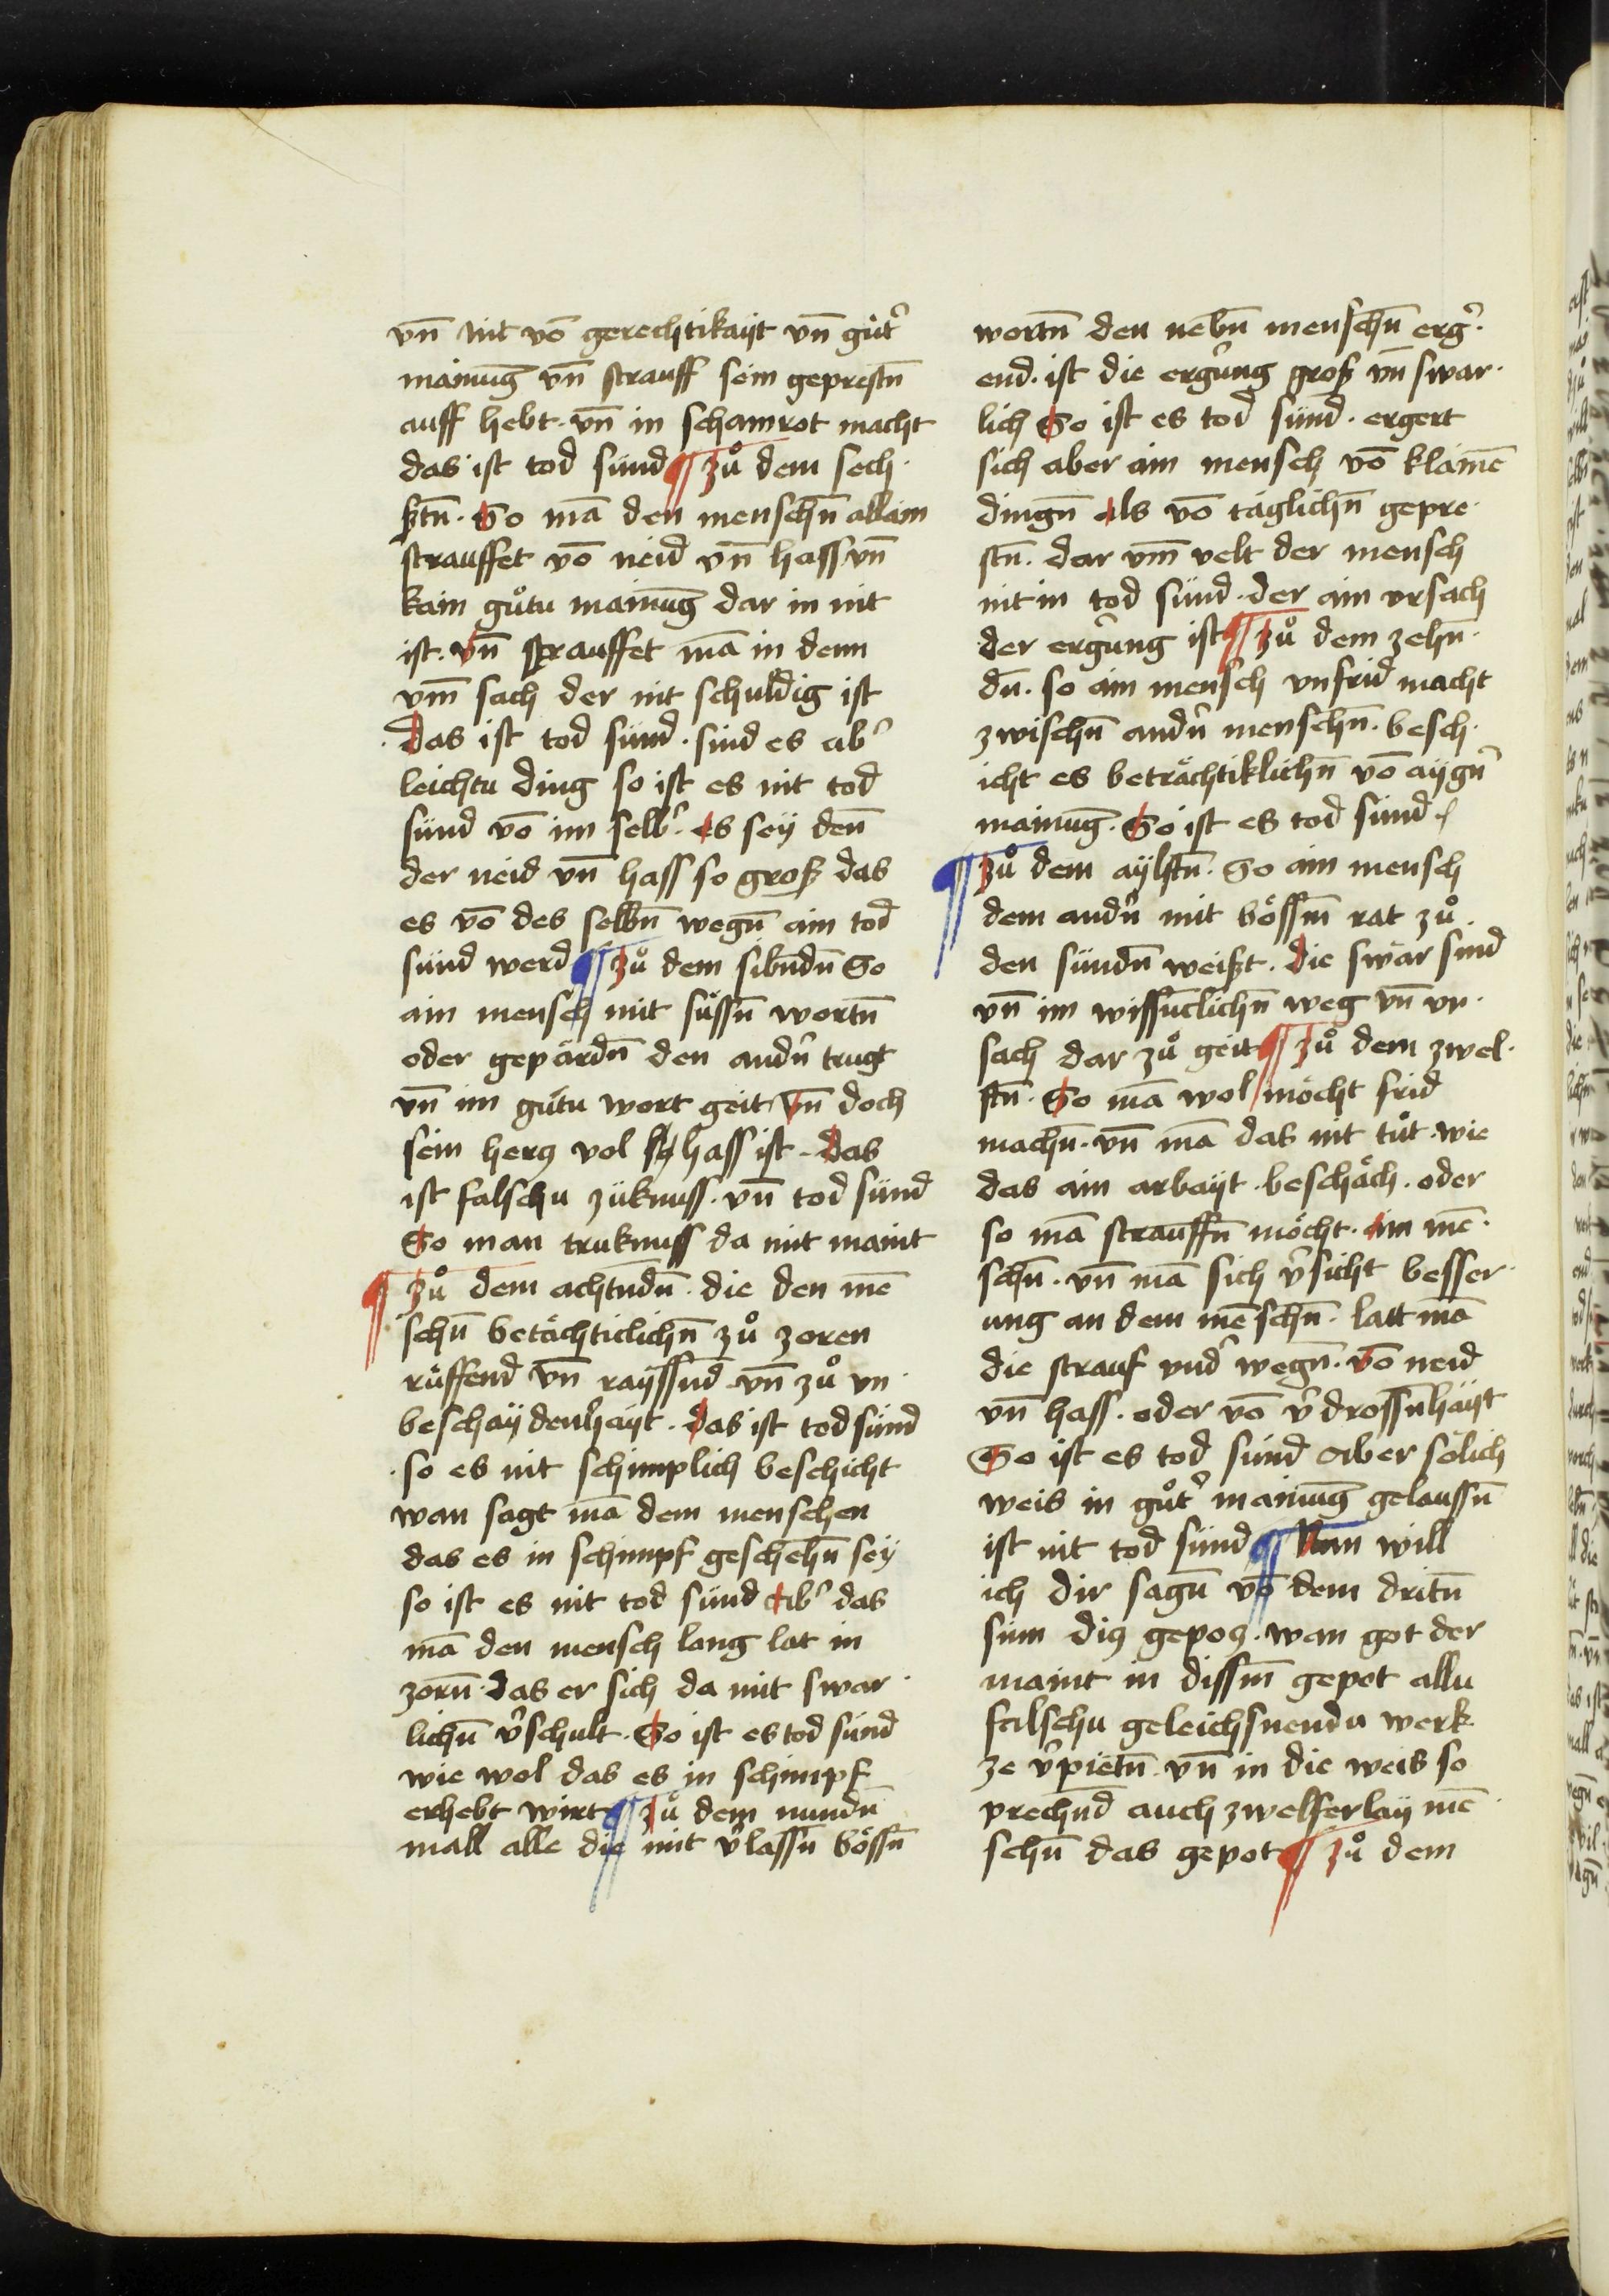 vn̄ nit vō gerechtikayt vn̄ gůt᷑
mainūg vn̄ strauff sein geprestn̄
auff hebt · vn̄ in schamrot macht
das ist tod sünd ¶ zů dem sech ·
stn̄ · So mā den menschn̄ allain
strauffet vō neid vn̄ hass vn̄
kain gůtu mainūg dar in nit
ist · vn̄ strauffet mā in denn
vm̄ sach der nit schuldig ist
· das ist tod sünd · sind es ab᷑
leichtu ding so ist es nit tod
sünd vō im selb᷑ · es sey den̄
der neid vn̄ hass so groß das
es vō des selbn̄ wegn̄ ain tod
sünd werd ¶ zů dem sibn̄dn̄ So
ain mensch mit süssn̄ wortn̄
oder gepärdn̄ den and᷑n trugt
vn̄ im gůtu wort geit vn̄ doch
sein hercz vol hass ist · das
ist falschu züknuss · vn̄ tod sünd
So man truknuss da mit maint
¶ zů dem achtn̄dn̄ · die den mē
schn̄ betächticlichn̄ zů zoren
rüffend vn̄ rayssn̄d · vn̄ zů vn ·
beschaydenhayt · das ist tod sünd
· so es nit schimplich beschicht
wan sagt mā dem menschen
das es in schimpf geschehn̄ sey
so ist es nit tod sünd ab᷑ das
mā den mensch lang lat in
zorn̄ · das er sich da mit swar ·
lichn̄ v᷑schult · So ist es tod sünd
wie wol das es in schimpf
erhebt wirt ¶ zů dem nundn̄
mall alle die mit v᷑lassn̄ bössn̄
wortn̄ den nebn̄ menschn̄ erg᷑ ·
end · ist die erg᷑ung groß vn̄ swar ·
lich So ist es tod sünd · ergert
sich aber ain mensch vō klainē
dingn̄ als vō täglichn̄ gepre ·
stn̄ · dar vm̄ velt der mensch
nit in tod sünd · der ain vrsach
der erg᷑ung ist ¶ zů dem zehn̄ ·
dn̄ · so ain mensch vnfrid macht
zwischn̄ and᷑n menschn̄ · besch ·
icht es beträchtiklichn̄ vō aygn᷑
mainūg · So ist es tod sünd ·
¶ zů dem aylftn̄ · So ain mensch
dem and᷑n mit bössm̄ rat zů ·
den sündn̄ weißt · die swär sind
vn̄ im wissn̄clichn̄ weg vn̄ vr ·
sach dar zů geit ¶ zů dem zwel ·
ftn̄ · So mā wol möcht frid
machn̄ · vn̄ mā das nit tůt · wie
das ain arbayt · beschäch · oder
so mā strauffn̄ möcht · ain mē ·
schn̄ · vn̄ mā sich v᷑sicht besser ·
ung an dem mēschn̄ · latt mā
die strauf vnd᷑ wegn̄ · vō neid
vn̄ hass · oder vō v᷑drossn̄hayt
So ist es tod sünd Aber sölich
weis in gůt᷑ mainūg gelaussn̄
ist nit tod sünd ¶ Nun will
ich dir sagn̄ vō dem dritn̄
sinn dicz gepocz · wan got der
maint in dissm̄ gepot allu
falschu geleichsnendu werk
ze v᷑pietn̄ · vn̄ in die weis so
prechn̄d auch zwelferlay mē ·
schn̄ das gepot ¶ zů dem